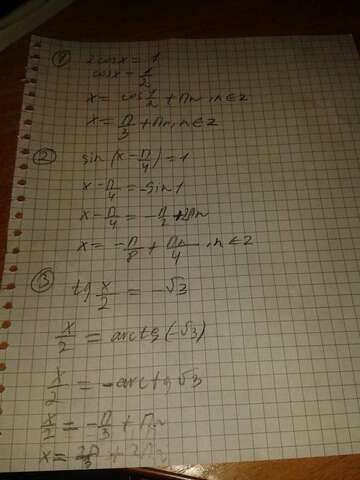 ① 2cosx = 1
cosx = 1/2
x = cos 1/2 + πn, n∈Z
x = π/3 + πn, n∈Z
② sin(x - π/4) = 1
x - π/4 = -sin 1
x - π/4 = -π/2 + 2πn
x = -π/8 + πn/4, n∈Z
③ tg x/2 = -√3
x/2 = arctg(-√3)
x/2 = -arctg√3
x/2 = -π/3 + πn
x = + 2πn